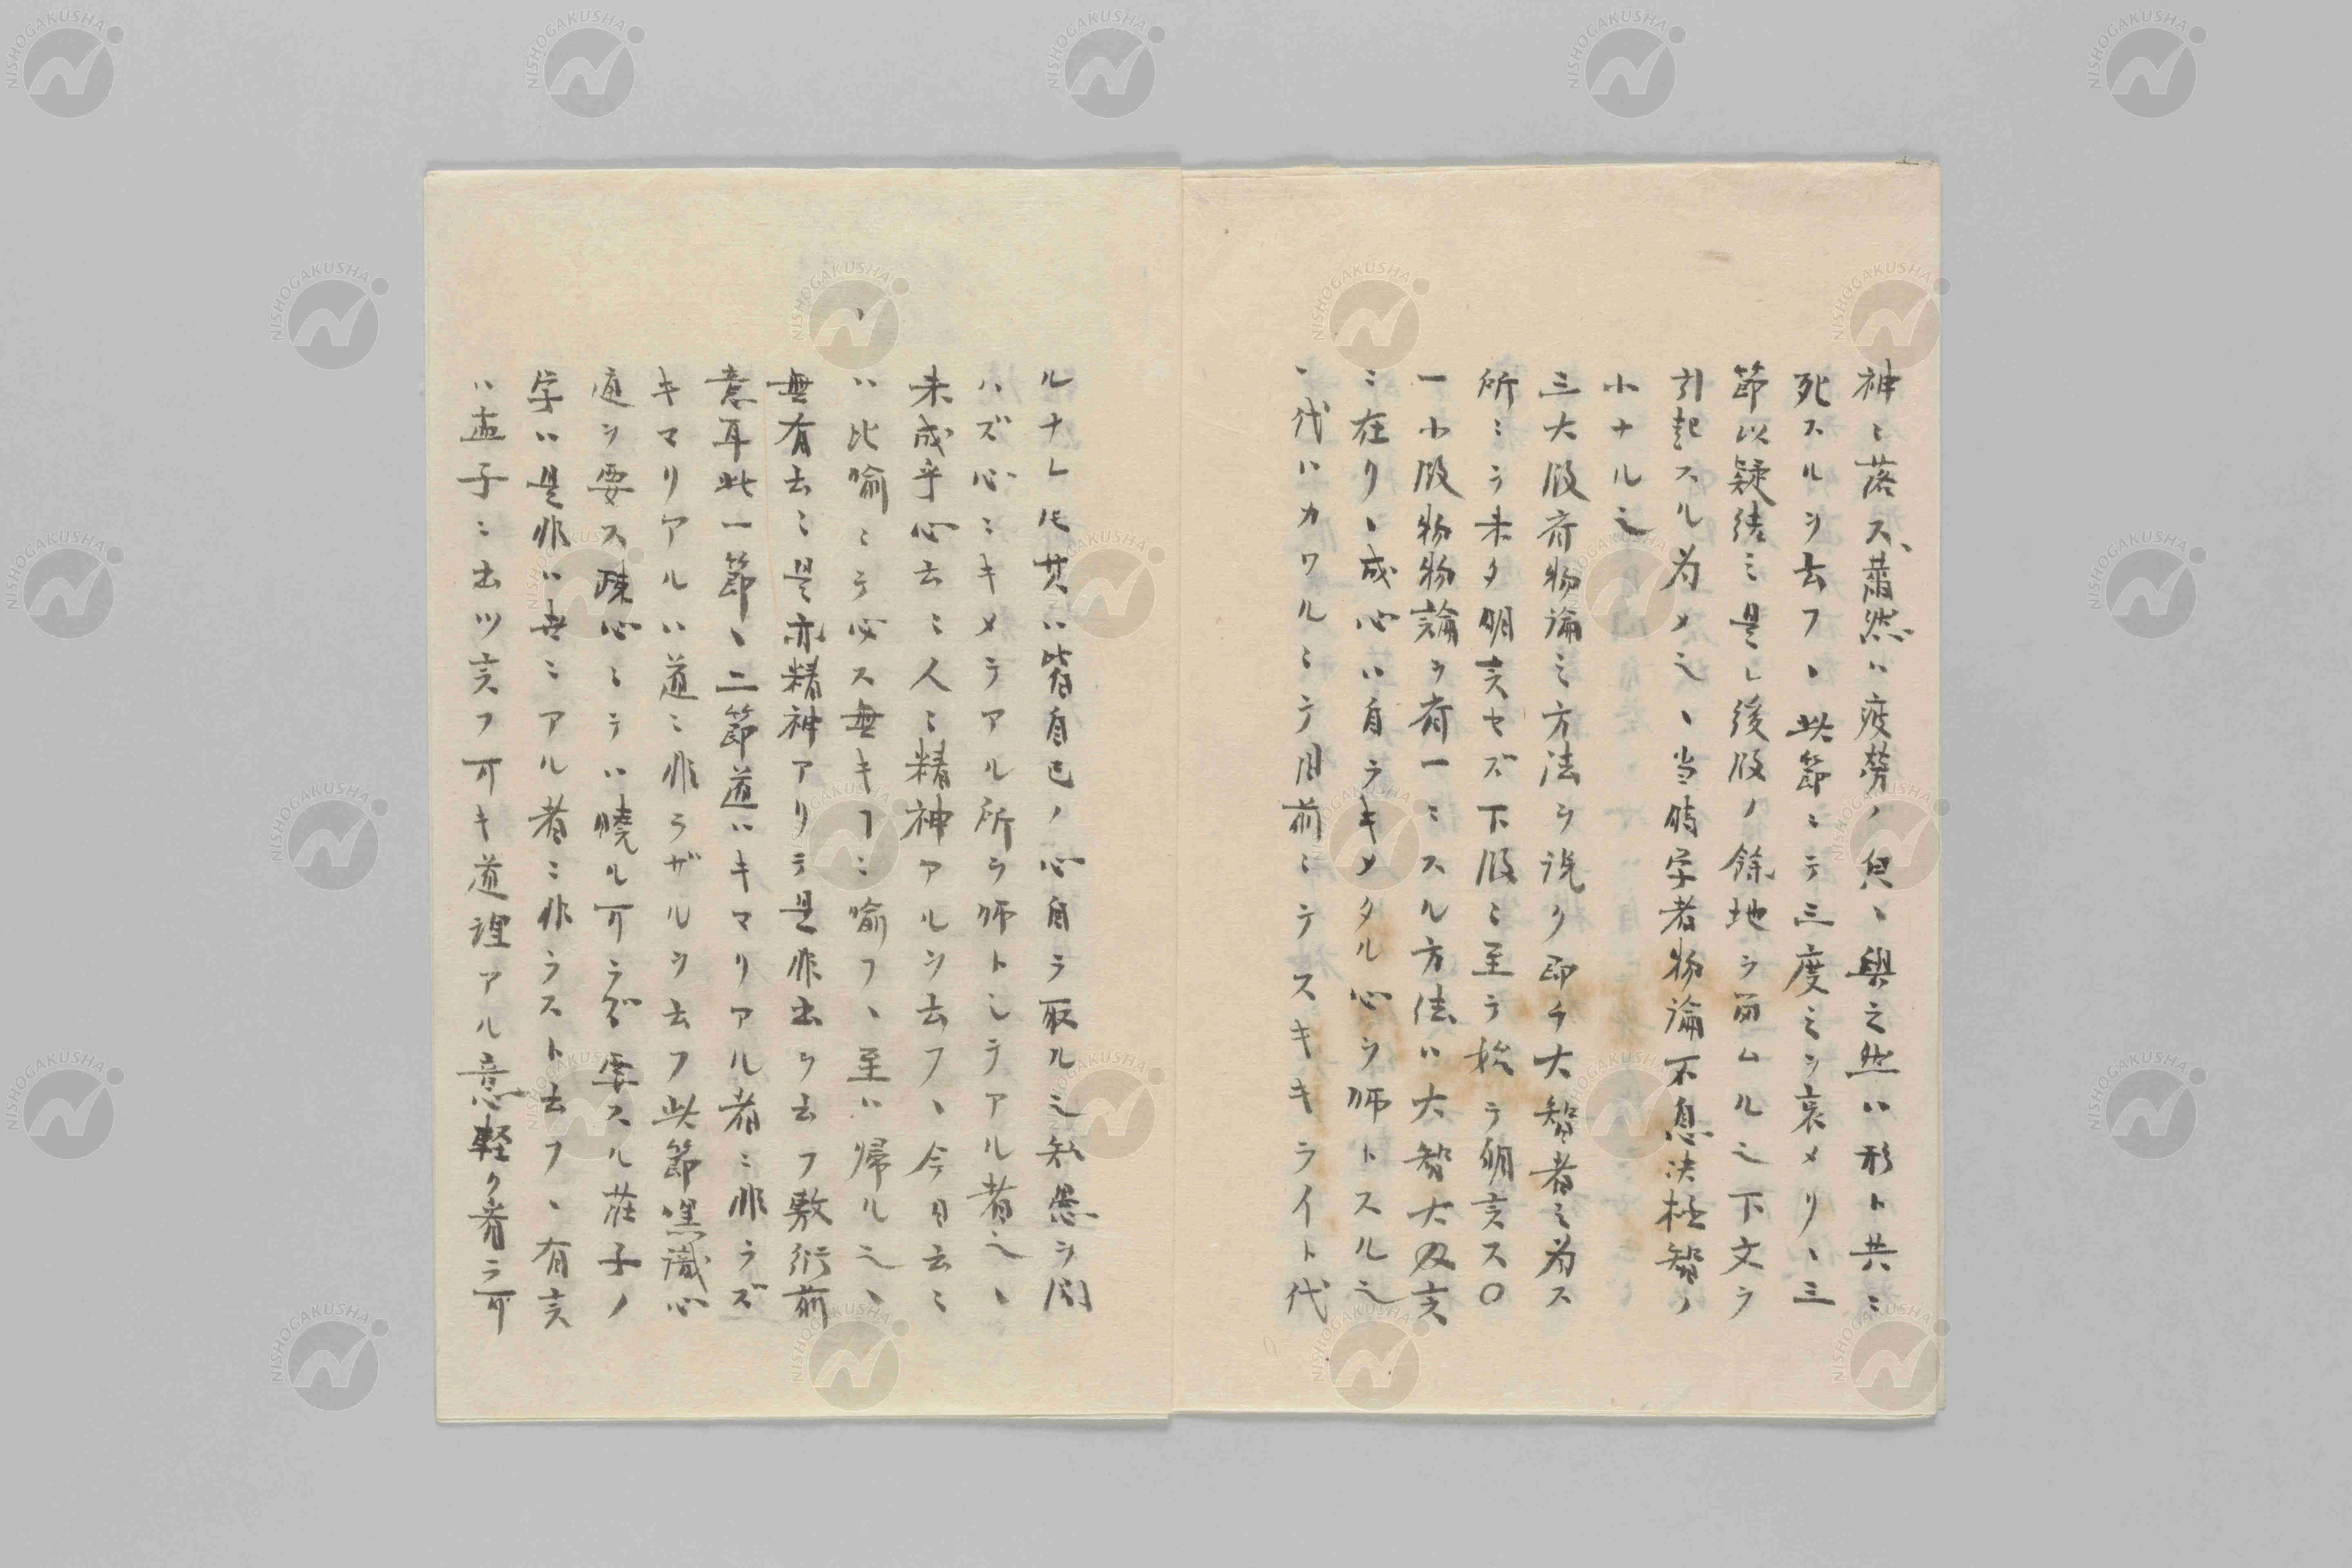 神ニ落ス、薾然ハ疲労ノ皃、與之然ハ形ト共ニ
死スルヲ云フ、此節ニテ三度ミヲ哀メリ、三
節以疑結ミ是レ後段ノ餘地ヲ留ムル之下文ヲ
引起スル為メ之、当時学者物論不息決極智ノ
小ナル之
三大段斉物論ミ方法ヲ説ク即チ大智者ミ為ス
所ニテ未タ明言セズ下段ニ至テ始テ明言ス〇
一小段物物論ヲ斉一ニスル方法ハ大智大及言
ニ在リ、成心ハ自ラキメタル心ヲ師トスル之
、代ハカワルニテ目前ニテスキキライト代
ルナレ𪜈其ハ皆自己ノ心自ラ取ル之知愚ヲ問
ハズ心ニキメテアル所ヲ師トシテアル者之、
未成乎心云ミ人ニ精神アルヲ云フ、今日云ミ
ハ比喩ニテ必ス無キヿニ喩フ、至ハ帰ル之、
無有云ミ是亦精神アリテ是非出ヲ云フ敷衍前
意耳此一節、二節道ハキマリアル者ニ非ラズ
キマリアルハ道ニ非ラザルヲ云フ此節黒識心
適ヲ要ス疎心ニテハ曉ル可ラズ要スル荘子ノ
学ハ是非ハ世ニアル者ニ非ラスト云フ、有言
ハ孟子ニ出ツ言フ可キ道理アル意軽ク着ラ可
NISHOGAKUSHA